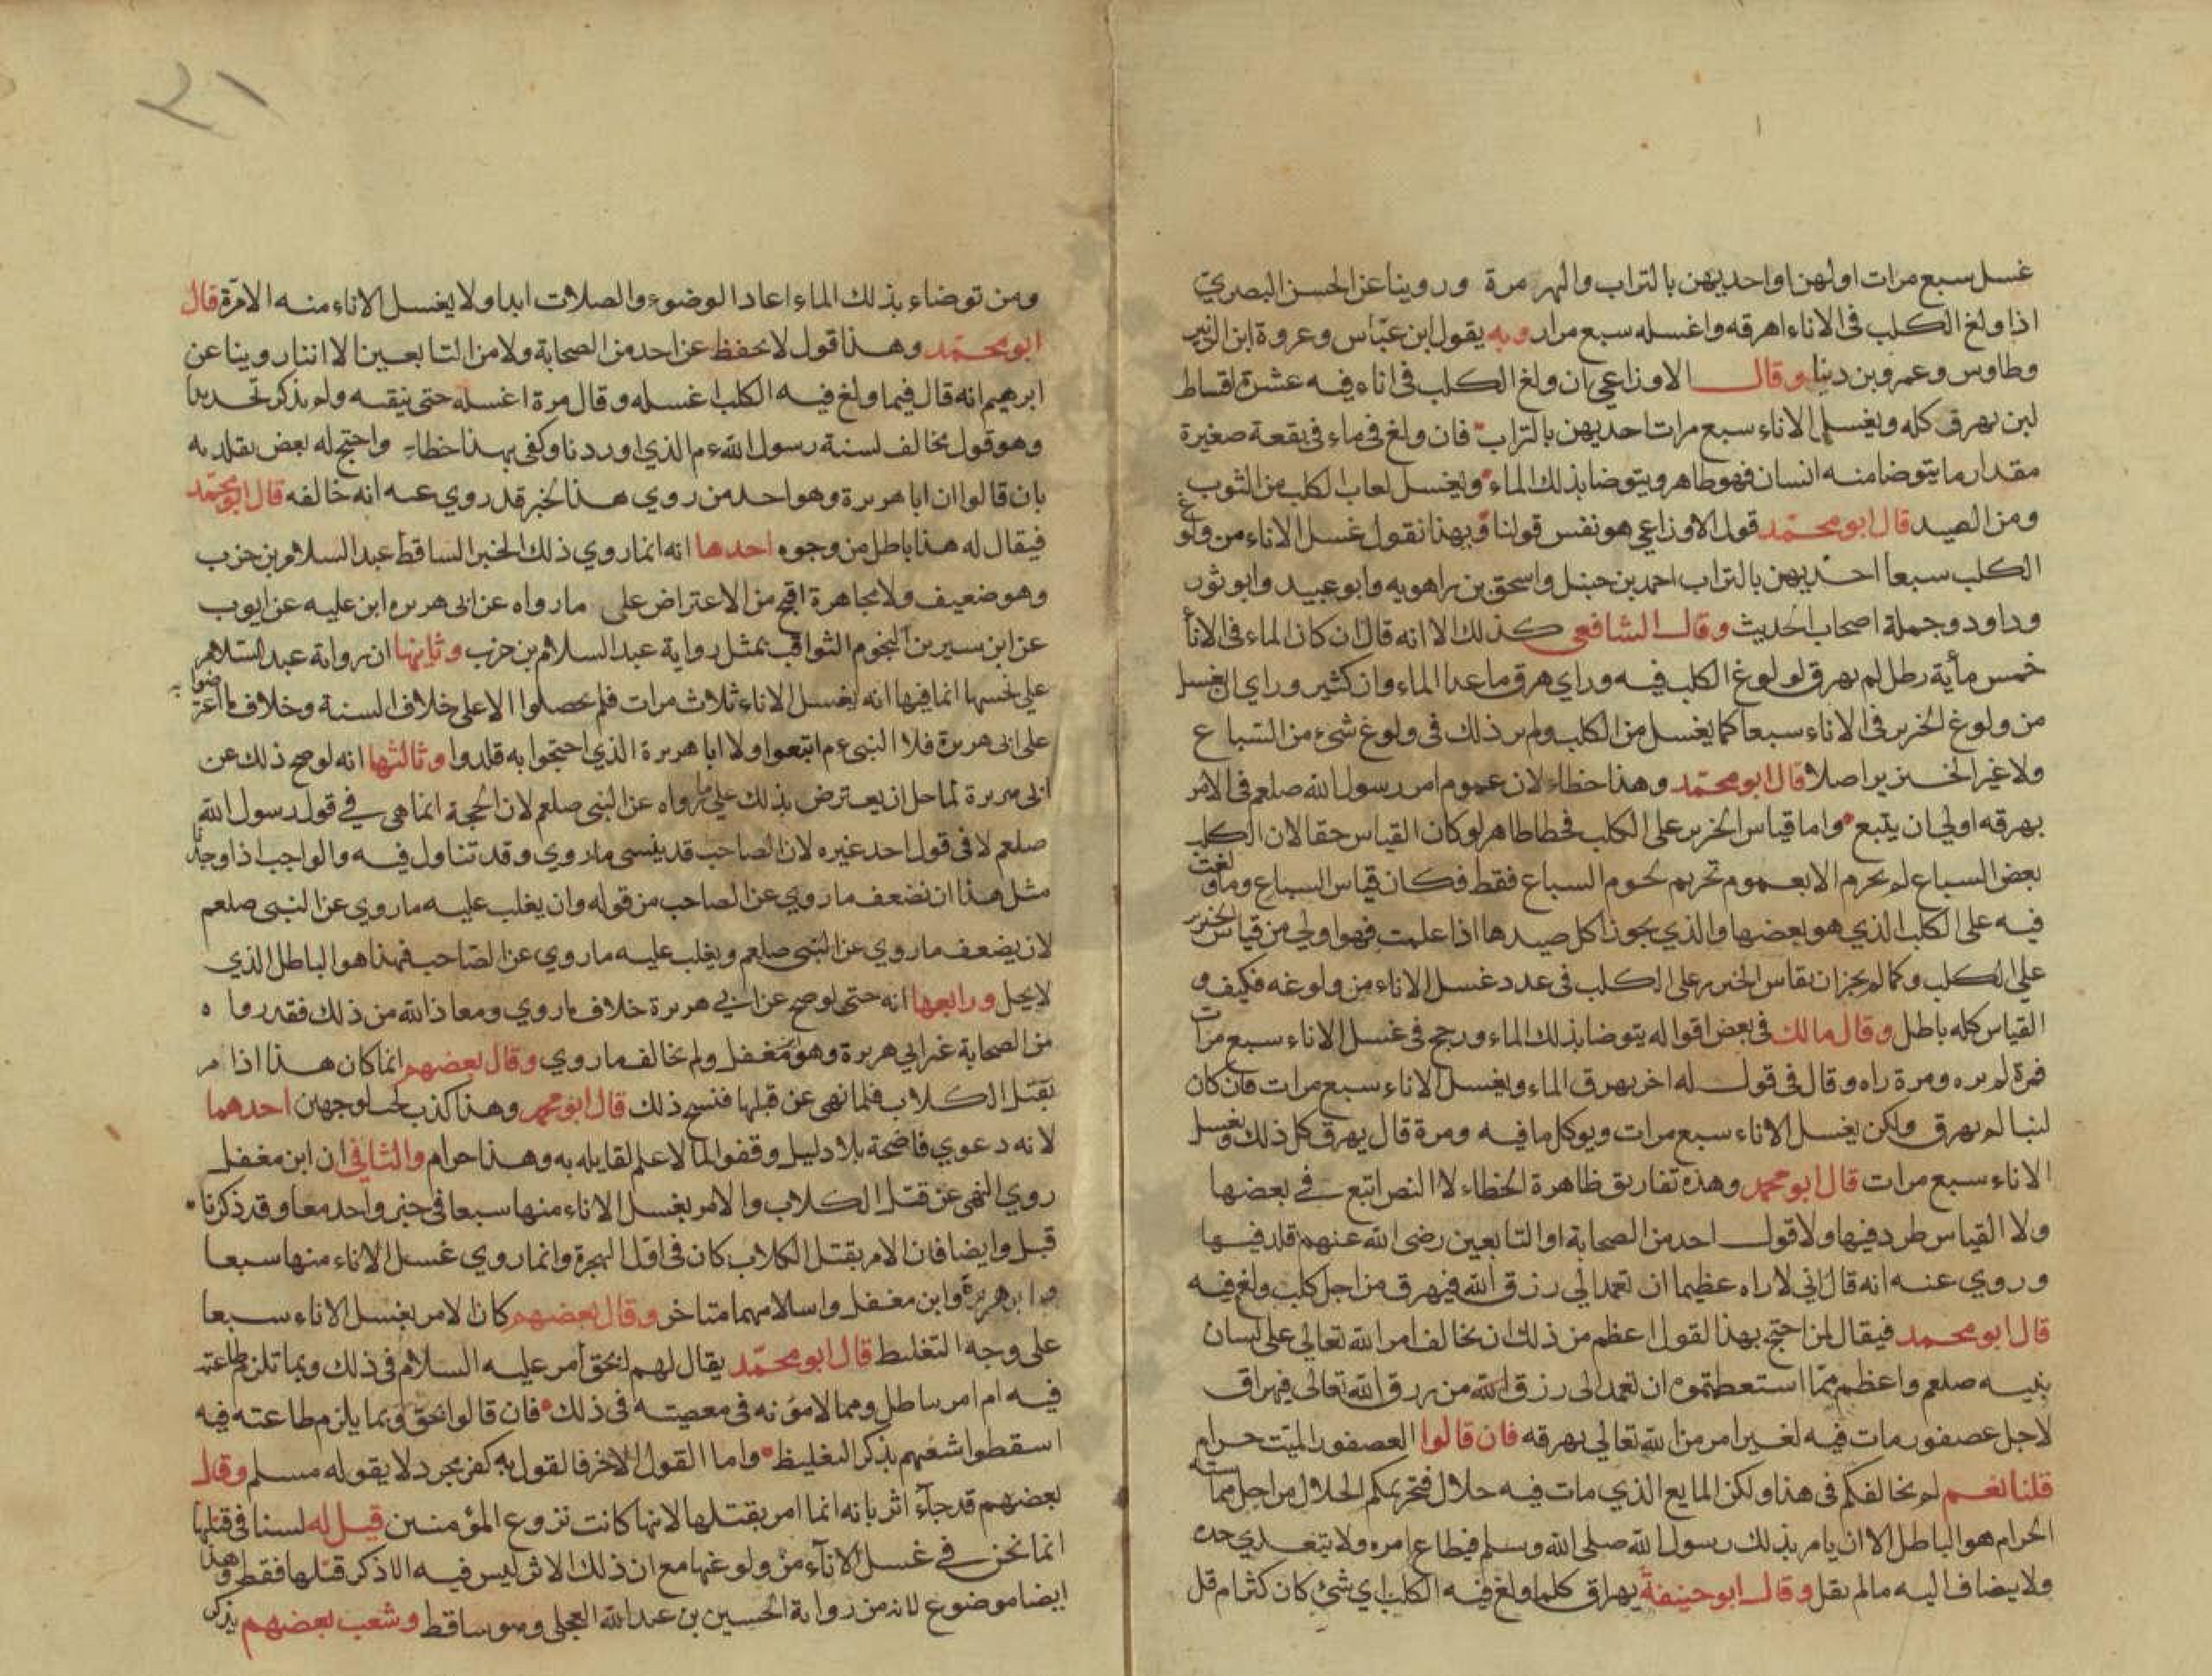 غسل سبع مرات اولهن او احديهن بالتراب والهر مرة وروينا عن الحسن البصري
اذا ولغ الكلب في الاناء اهرقه واغسله سبع مرار وبه يقول ابن عباس وعروة ابن الزبير
وطاوس وعمرو بن دينار وقال الاوزاعي ان ولغ الكلب في اناء فيه عشرة اقساط
لبن يهرق كله ويغسل الاناء سبع مرات احديهن بالتراب فان ولغ في ماء في بقعة صغيرة
مقدار ما يتوضا منه انسان فهو طاهر ويتوضا بذلك الماء ويغسل لعاب الكلب من الثوب
ومن الصيد قال ابو محمد قول الاوزاعي هو نفس قولنا وبهذا نقول غسل الاناء من ولوغ
الكلب سبعا احديهن بالتراب احمد بن حنبل واسحق بن راهويه وابو عبيد وابو ثور
وداود وجملة اصحاب الحديث وقال الشافعي كذلك الا انه قال ان كان الماء في الانا
خمس مأية رطل لم يهرق لولوغ الكلب فيه وراي هرق ما عدا الماء وان كثير وراي الغسل
من ولوغ الخنزير في الاناء سبعا كما يغسل من الكلب ولم ير ذلك في ولوغ شيء من السباع
ولا غير الخنزير اصلا قال ابو محمد وهذا خطاء لان عموم امر رسول الله صلعم في الامر
بهرقه اولي ان يتبع واما قياس الخنزير على الكلب فخطا ظاهر لو كان القياس حقا لان الكلب
بعض السباع لم يحرم الا بعموم تحريم لحوم السباع فقط فكان قياس السباع وما ولغت
فيه على الكلب الذي هو بعضها والذي يجوز اكل صيدها اذا علمت فهو اولي من قياس الخنزير
على الكلب وكما لم يجز ان يقاس الخنزير على الكلب في عدد غسل الاناء من ولوغه فكيف و
القياس كله باطل وقال مالك في بعض اقواله يتوضا بذلك الماء ورجح في غسل الاناء سبع مرات
فمرة لم يره ومرة راه وقال في قول له اخر يهرق الماء ويغسل الاناء سبع مرات فان كان
لبنا لم يهرق ولكن يغسل الاناء سبع مرات ويوكل ما فيه ومرة قال يهرق كل ذلك ويغسل
الاناء سبع مرات قال ابو محمد وهذه تفاريق ظاهرة الخطاء لا النص اتبع في بعضها
ولا القياس طرد فيها ولا قول احد من الصحابة او التابعين رضى الله عنهم قلد فيها
وروي عنه انه قال اني لاراه عظيما ان تعمد الي رزق الله فيهرق من اجل كلب ولغ فيه
قال ابو محمد فيقال لمن احتج بهذا لقول اعظم من ذلك ان تخالف امر الله تعالي على لسان
نبيه صلعم واعظم مما استعظمتموه ان تعمد الى رزق الله من رزق الله تعالى فيهراق
لاجل عصفور مات فيه لغير امر من الله تعالي بهرقه فان قالوا العصفور الميت حرام
قلنا نعم لم نخالفكم في هذا ولكن المايع الذي مات فيه حلال فتحريمكم الحلال من اجل مماسته
الحرام هو الباطل الا ان يامر بذلك رسول الله صلى الله وسلم فيطاع امره ولا يتعدي حده
ولا يضاف اليه ما لم يقل وقال ابو حنيفة يهراق كلما ولغ فيه الكلب اي شئ كان كثر ام قل
ومن توضاء بذلك الماء اعاد الوضوء والصلات ابدا ولا يغسل الاناء منه الا مرة قال
ابو محمد وهذا قول لا يحفظ عن احد من الصحابة ولا من التابعين الا اننا روينا عن
ابرهيم انه قال فيما ولغ فيه الكلب اغسله وقال مرة اغسله حتى ينقه ولم يذكر تحديدا
وهو قول مخالف لسنة رسول الله عم الذي اوردنا وكفى بهذا خطاء واحتج له بعض مقلديه
بان قالوا ان ابا هريرة وهو احد من روي هذا الخبر قد روي عنه انه خالفه قال ابو محمد
فيقال له هذا باطل من وجوه احدها انه انما روي ذلك الخبر الساقط عبد السلام بن حرب
وهو ضعيف ولا مجاهرة اقبح من الاعتراض على ما رواه عن ابى هريره ابن عليه عن ايوب
عن ابن سيرين النجوم الثواقب بمثل رواية عبد السلام بن حرب وثانيها ان رواية عبد السلام
على نحسها انما فيها انه يغسل الاناء ثلاث مرات فلم يحصلوا الا على خلاف السنة وخلاف ما اعترضوا به
على ابى هريرة فلا النبي عم اتبعوا ولا ابا هريرة الذي احتجوا به قلدوا وثالثها انه لو صح ذلك عن
ابى هريرة لما حل ان يعترض بذلك على ما رواه عن النبي صلعم لان الحجة انما هي في قول رسول الله
صلعم لا في قول احد غيره لان الصاحب قد ينسى ما روي وقد تناول فيه والواجب اذا وجدنا
مثل هذا ان نضعف ما روي عن الصاحب من قوله وان يغلب عليه ما روي عن النبي صلعم
لان يضعف ما روي عن النبي صلعم ويغلب عليه ما روي عن الصاحب فهذا هو الباطل الذي
لا يحل ورابعها انه حتى لو صح عن ابي هريرة خلاف ما روي ومعاذ الله من ذلك فقد رواه
من الصحابة غير ابي هريرة وهو مغفل ولم يخالف ما روي وقال بعضهم انما كان هذا اذا مر
بقتل الكلاب فلما نهى عن قتلها فنسخ ذلك قال ابو محمد وهذا كذب لحب لوجهين احدهما
لانه دعوي فاضحة بلا دليل وقفوا لما لا علم لقايله به وهذا حرام والثاني ان ابن مغفل
روي النهى عن قتل الكلاب والامر بغسل الاناء منها سبعا في خبر واحد معا وقد ذكرنا
قبل وايضا فان الامر بقتل الكلاب كان في اول الهجرة وانما روي غسل الاناء منها سبعا
هريرة وابن مغفل واسلامهما متاخر وقال بعضهم كان الامر بغسل الاناء سبعا
على وجه التغليظ قال ابو محمد يقال لهم ابحق امر عليه السلام في ذلك وبما تلزم طاعته
فيه ام امر بباطل ومما لا مؤنه في معصيته في ذلك فان قالوا بحق وبما يلزم طاعته فيه
اسقطوا شغبهم بذكر التغليظ واما القول الاخر فالقول به كفر مجرد لا يقوله مسلم وقال
بعضهم قد جآء اثر بانه انما امر بقتلها لانها كانت تروع المؤمنين قيل له لسنا في قتلها
انما نحن في غسل الانآء من ولوغها مع ان ذلك الاثر ليس فيه الا ذكر قتلها فقط وهذا
ايضا موضوع لانه من رواية الحسين بن عبد الله العجلي وهو ساقط وشغب بعضهم بذكر